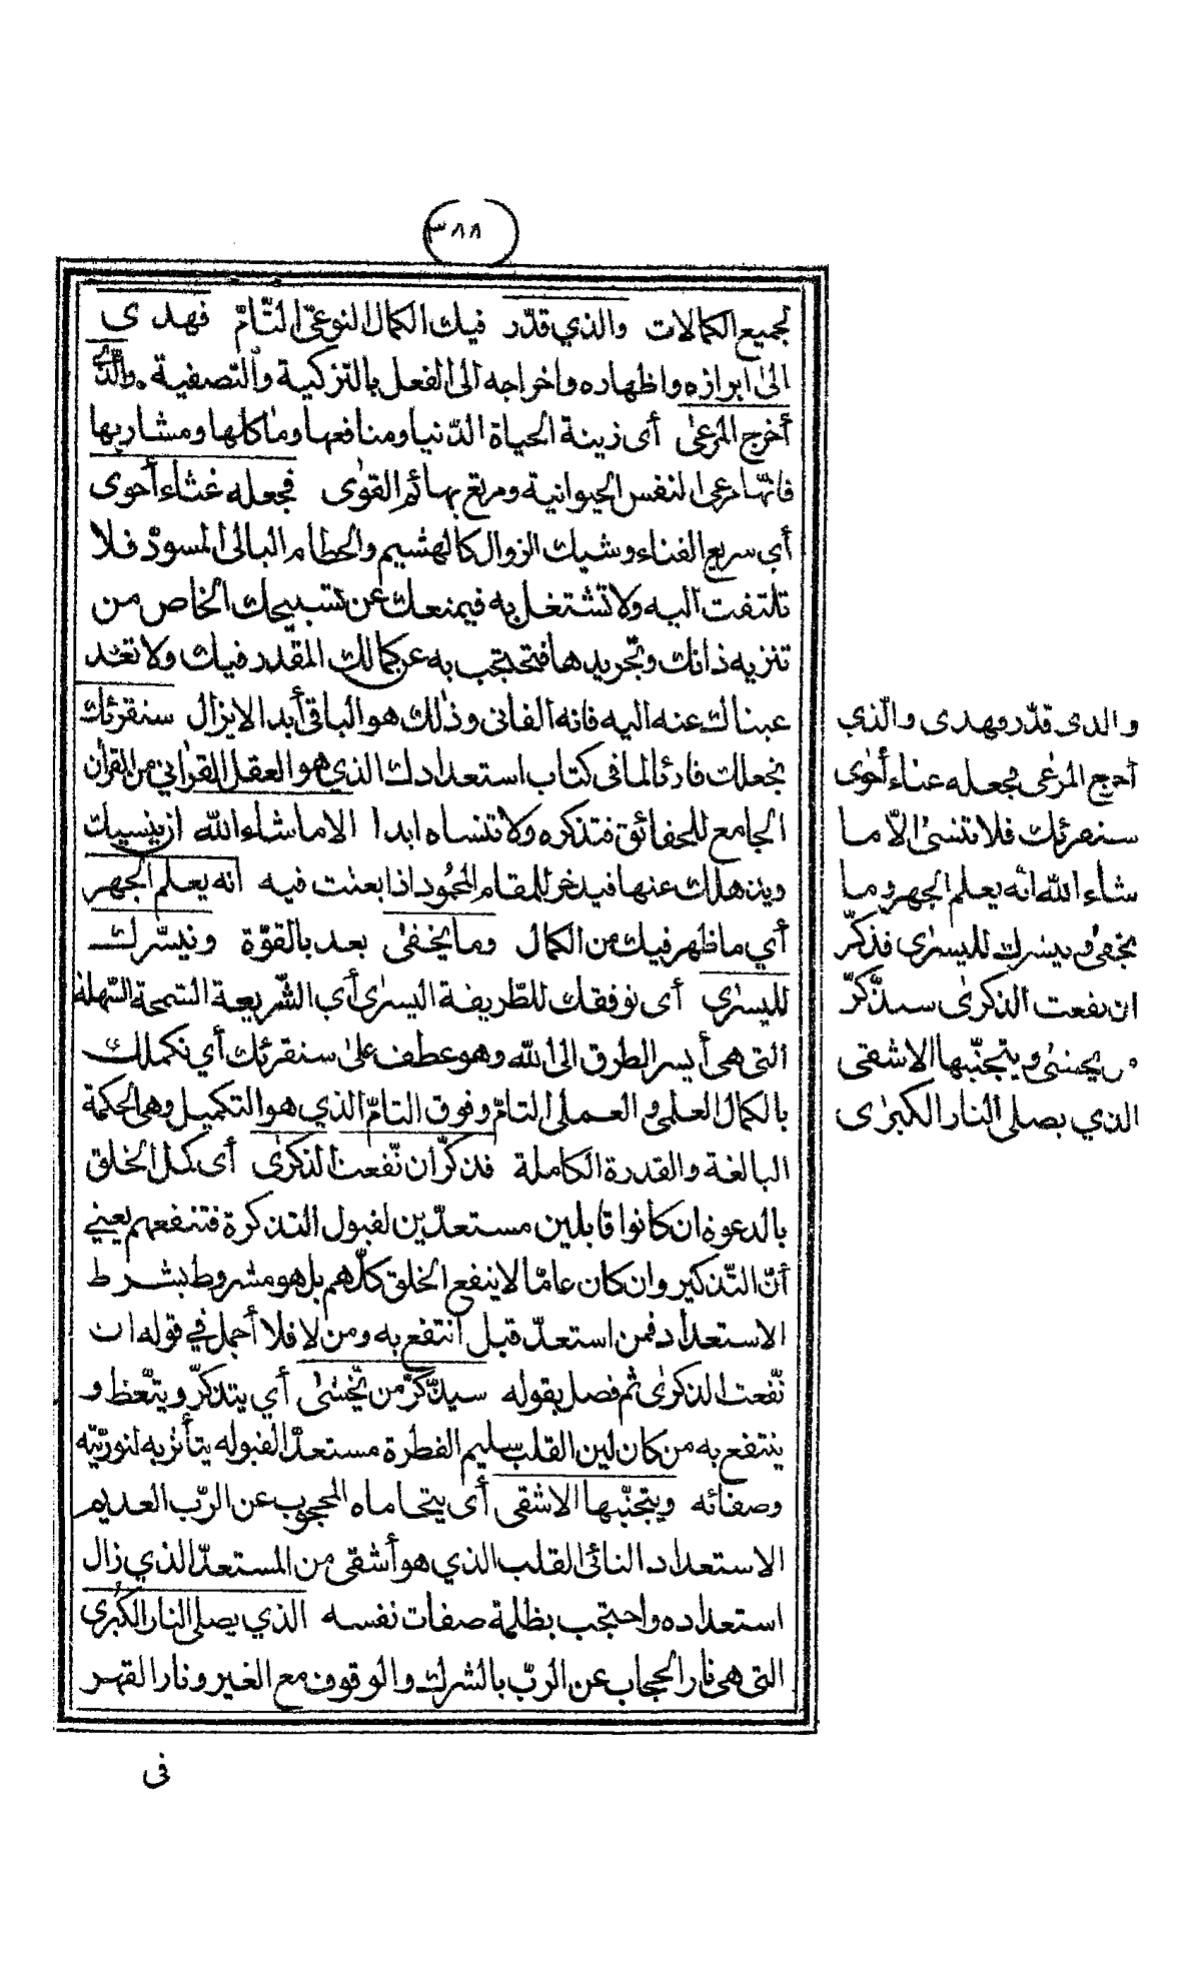 ٣٨٨
لجميع الكمالات والذي قدّر فيك الكمال النوعيّ التّامّ فهدى
الى ابرازه واظهاره واخراجه الى الفعل بالتزكية والتصفية والّذي
أخرج المرعى أى زينة الحياة الدّنيا ومنافعها ومآكلها ومشاربها
فانّها مرعى النفس الحيوانية ومرتع بهائم القوى فجعله غثاء أحوى
أي سريع الفناء وشيك الزوال كالهشيم والحطام البالى المسودّ فلا
تلتفت اليه ولا تشتغل به فيمنعك عن تسبيحك الخاص من
تنزيه ذاتك وتجريدها فتحتجب به عن كمالك المقدّر فيك ولا تعد
عيناك عنه اليه فانه الفانى وذلك هو الباقى أبدا لا يزال سنقرئك
نجعلك قارئا لما فى كتاب استعدادك الذي هو العقل القرآني من القرآن
الجامع للحقائق فتذكره ولا تنساه ابدا الا ما شاء الله ان ينسيك
ويذهلك عنها فيدخر للمقام المحمود اذا بعثت فيه انه يعلم الجهر
أي ما ظهر فيك من الكمال وما يخفى بعد بالقوّة ونيسّرك
لليسرى أى نوفقك للطّريقة اليسرى أي الشّريعة السّمحة السّهلة
التى هى أيسر الطرق الى الله وهو عطف على سنقرئك أي نكملك
بالكمال العلمى والعملى التامّ وفوق التامّ الذي هو التكميل وهى الحكمة
البالغة والقدرة الكاملة فذكّر ان نّفعت الذكرى أى كمل الخلق
بالدعوة ان كانوا قابلين مستعدّين لقبول التذكرة فتنفعهم يعني
أنّ التّذكير وان كان عامّا لا ينفع الخلق كلّهم بل هو مشروط بشرط
الاستعداد فمن استعدّ قبل انتفع به ومن لا فلا أجمل في قوله ان
نّفعت الذكرى ثم فصل بقوله سيذّكّر من يّخشى أي يتذكّر ويتّعظ و
ينتفع به من كان لين القلب سليم الفطرة مستعدّا لقبوله يتأثر به لنوريّته
وصفائه ويتجنّبها الاشقى أى يتحاماه المحجوب عن الرّب العديم
الاستعداد النائى القلب الذي هو أشقى من المستعدّ الذي زال
استعداده واحتجب بظلمة صفات نفسه الذي يصلى النار الكبرى
التى هى نار الحجاب عن الربّ بالشرك والوقوف مع الغير ونار القهر
فى
والذى قدّر فهدى والّذي
أخرج المرعى فجعله غثاء أحوى
سنقرئك فلا تنسى الاّ ما
شاء الله انه يعلم الجهر وما
يخفى ونيسرك لليسرى فذكّر
ان نفعت الذكرى سيذّكّر
من يخشى ويتجنّبها الاشقى
الذي يصلى النار الكبرى